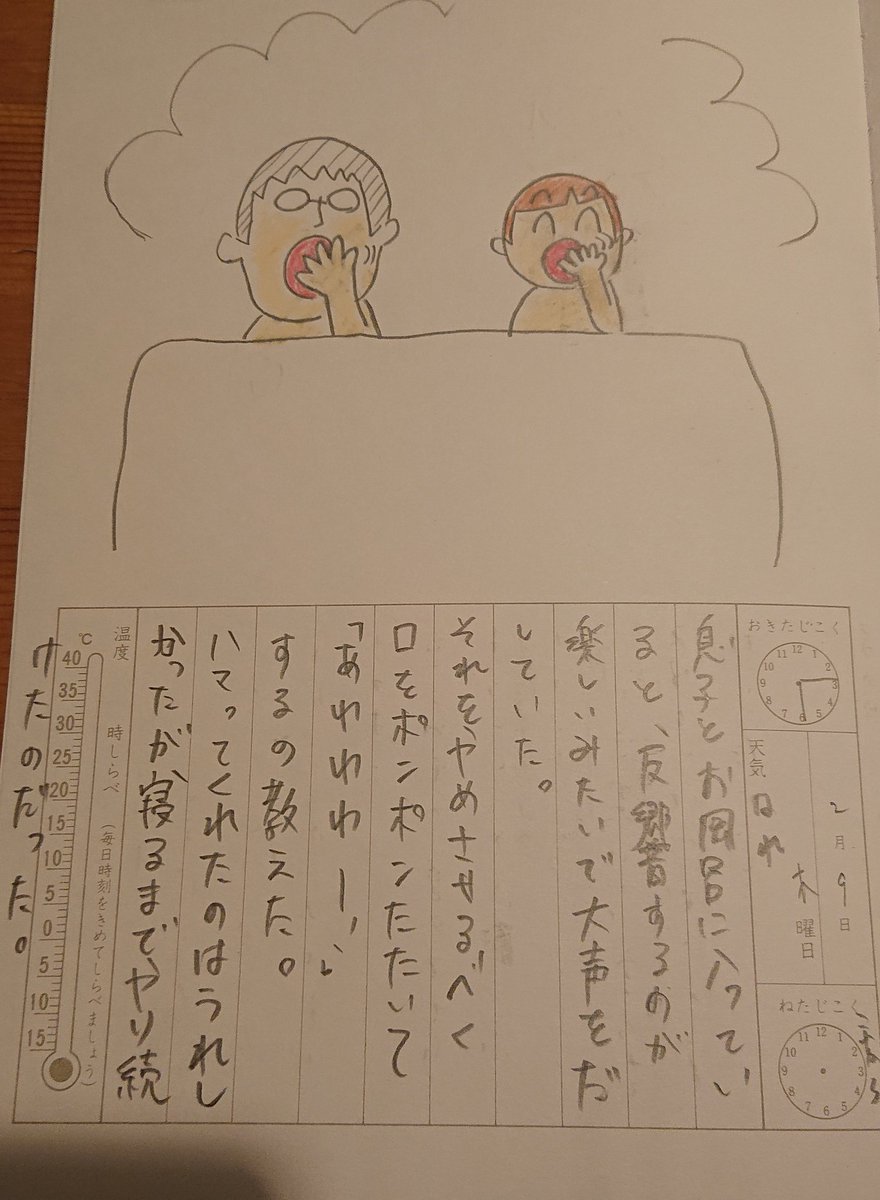 おきたじこく
12 1 2 3 4 5 6 7 8 9 10 11
2月9日
木曜日
天気
ねたじこく
12 1 2 3 4 5 6 7 8 9 10 11
息子とお風呂に入ってい
ると、反響するのが
楽しいみたいで大声をだ
していた。
それをやめさせるべく
口をポンポンたたいて
「あわわわー!」
するの教えた。
ハマってくれたのはうれし
かったが、寝るまでやり続
けたのだった。
温度 時しらべ (毎日時刻をきめてしらべましょう)
℃
40
35
30
25
20
15
10
5
0
5
10
15